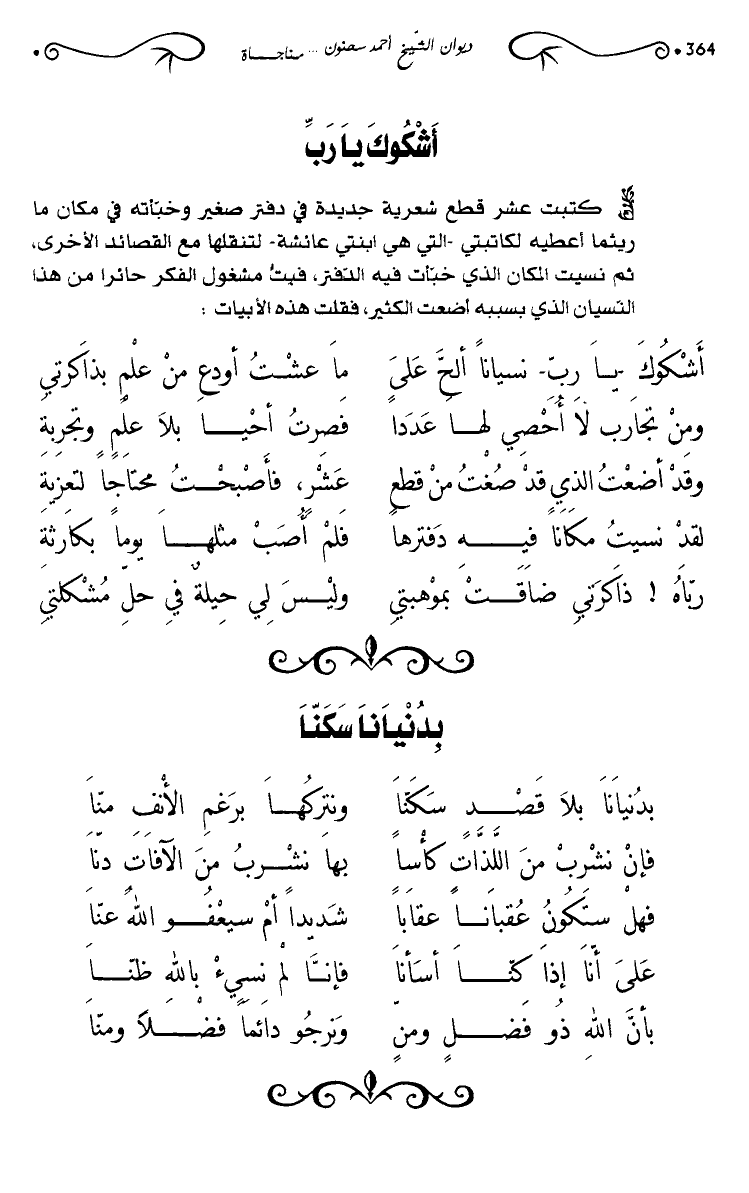 364 ديوان الشّيخ أحمد سحنون ... مناجاة
أَشْكُوكَ يا رَبِّ
كتبت عشر قطع شعرية جديدة في دفتر صغير وخبّأته في مكان ما
ريثما أعطيه لكاتبتي -التي هي ابنتي عائشة- لتنقلها مع القصائد الأخرى،
ثم نسيت المكان الذي خبّأت فيه الدّفتر، فبِتُّ مشغول الفكر حائرا من هذا
النّسيان الذي بسببه أضعت الكثير، فقلت هذه الأبيات :
أَشْكُوكَ -يا ربِّ- نسياناً ألحَّ عَلىَ ما عشْتُ أودع منْ علْمٍ بذاكرتي
ومنْ تجارب لاَ أُحْصي لها عَدَدَا فصرتُ أحْيا بلاَ علْمٍ وتجربة
وقدْ أضعْتُ الذي قدْ صُغْتُ منْ قطع عَشْرٍ، فأَصْبحْتُ محتاجاً لتعزية
لقدْ نسيتُ مكاناً فيه دَفترها فلمْ أُصَبْ مثلها يوماً بكارثة
ربّاهُ ! ذاكرَتي ضاقتْ بموْهبتي وليْسَ لي حيلةٌ في حلّ مُشْكلتي
بِدُنْيانا سَكَنّا
بدُنيانَا بلاَ قَصْد سَكَنّا ونتركُها برَغم الأنْف منّا
فإنْ نشْربْ منَ اللَّذَّات كأْساً بها نشْربُ منَ الآفات دنّا
فهلْ ستكُونُ عُقبانا عقاباً شديداً أمْ سيعْفُو اللهُ عنّا
عَلىَ أنّا إذا كنّا أسأنا فإنَّا لمْ نسيءْ بالله ظنّا
بأنَّ اللهِ ذُو فضلٍ ومنٍّ ونرجُو دائماً فضْلاً ومنّا